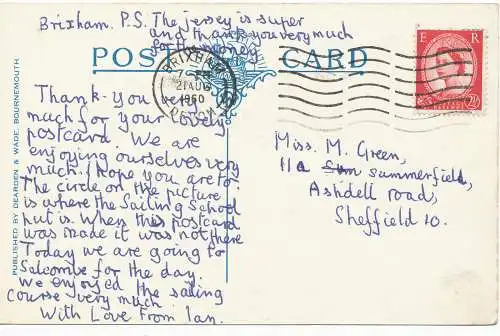 Brixham. P.S. The jersey is super
and thank you very much
for the money
POST CARD
BRIXHAM
21 AUG
1960
DEVON
E R
2½
Thank-you very
much for your lovely
postcard. We are
enjoying ourselves very
much. I hope you are to.
The circle on the picture
is where the Sailing School
hut is. When this postcard
was made it was not there
Today we are going to
Salcombe for the day.
We enjoyed the sailing
course very much
With Love From Ian.
Miss. M. Green,
11a Summerfield,
Ashdell road,
Sheffield 10.
PUBLISHED BY DEARDEN & WADE, BOURNEMOUTH